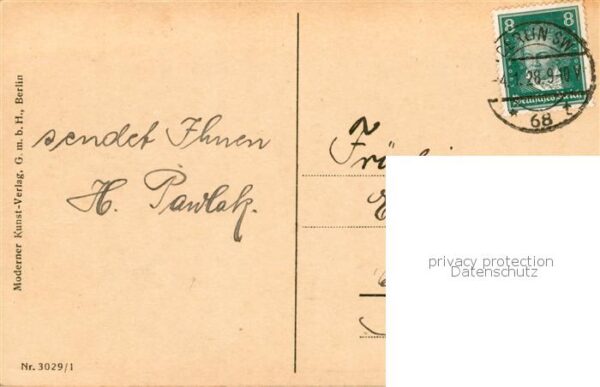 Moderner Kunst-Verlag, G. m. b. H., Berlin
sendet Ihnen
H. Pawlak.
Nr. 3029/1
8 8
Deutsches Reich
BERLIN SW
28.9-10 V
* 68 t
privacy protection
Datenschutz